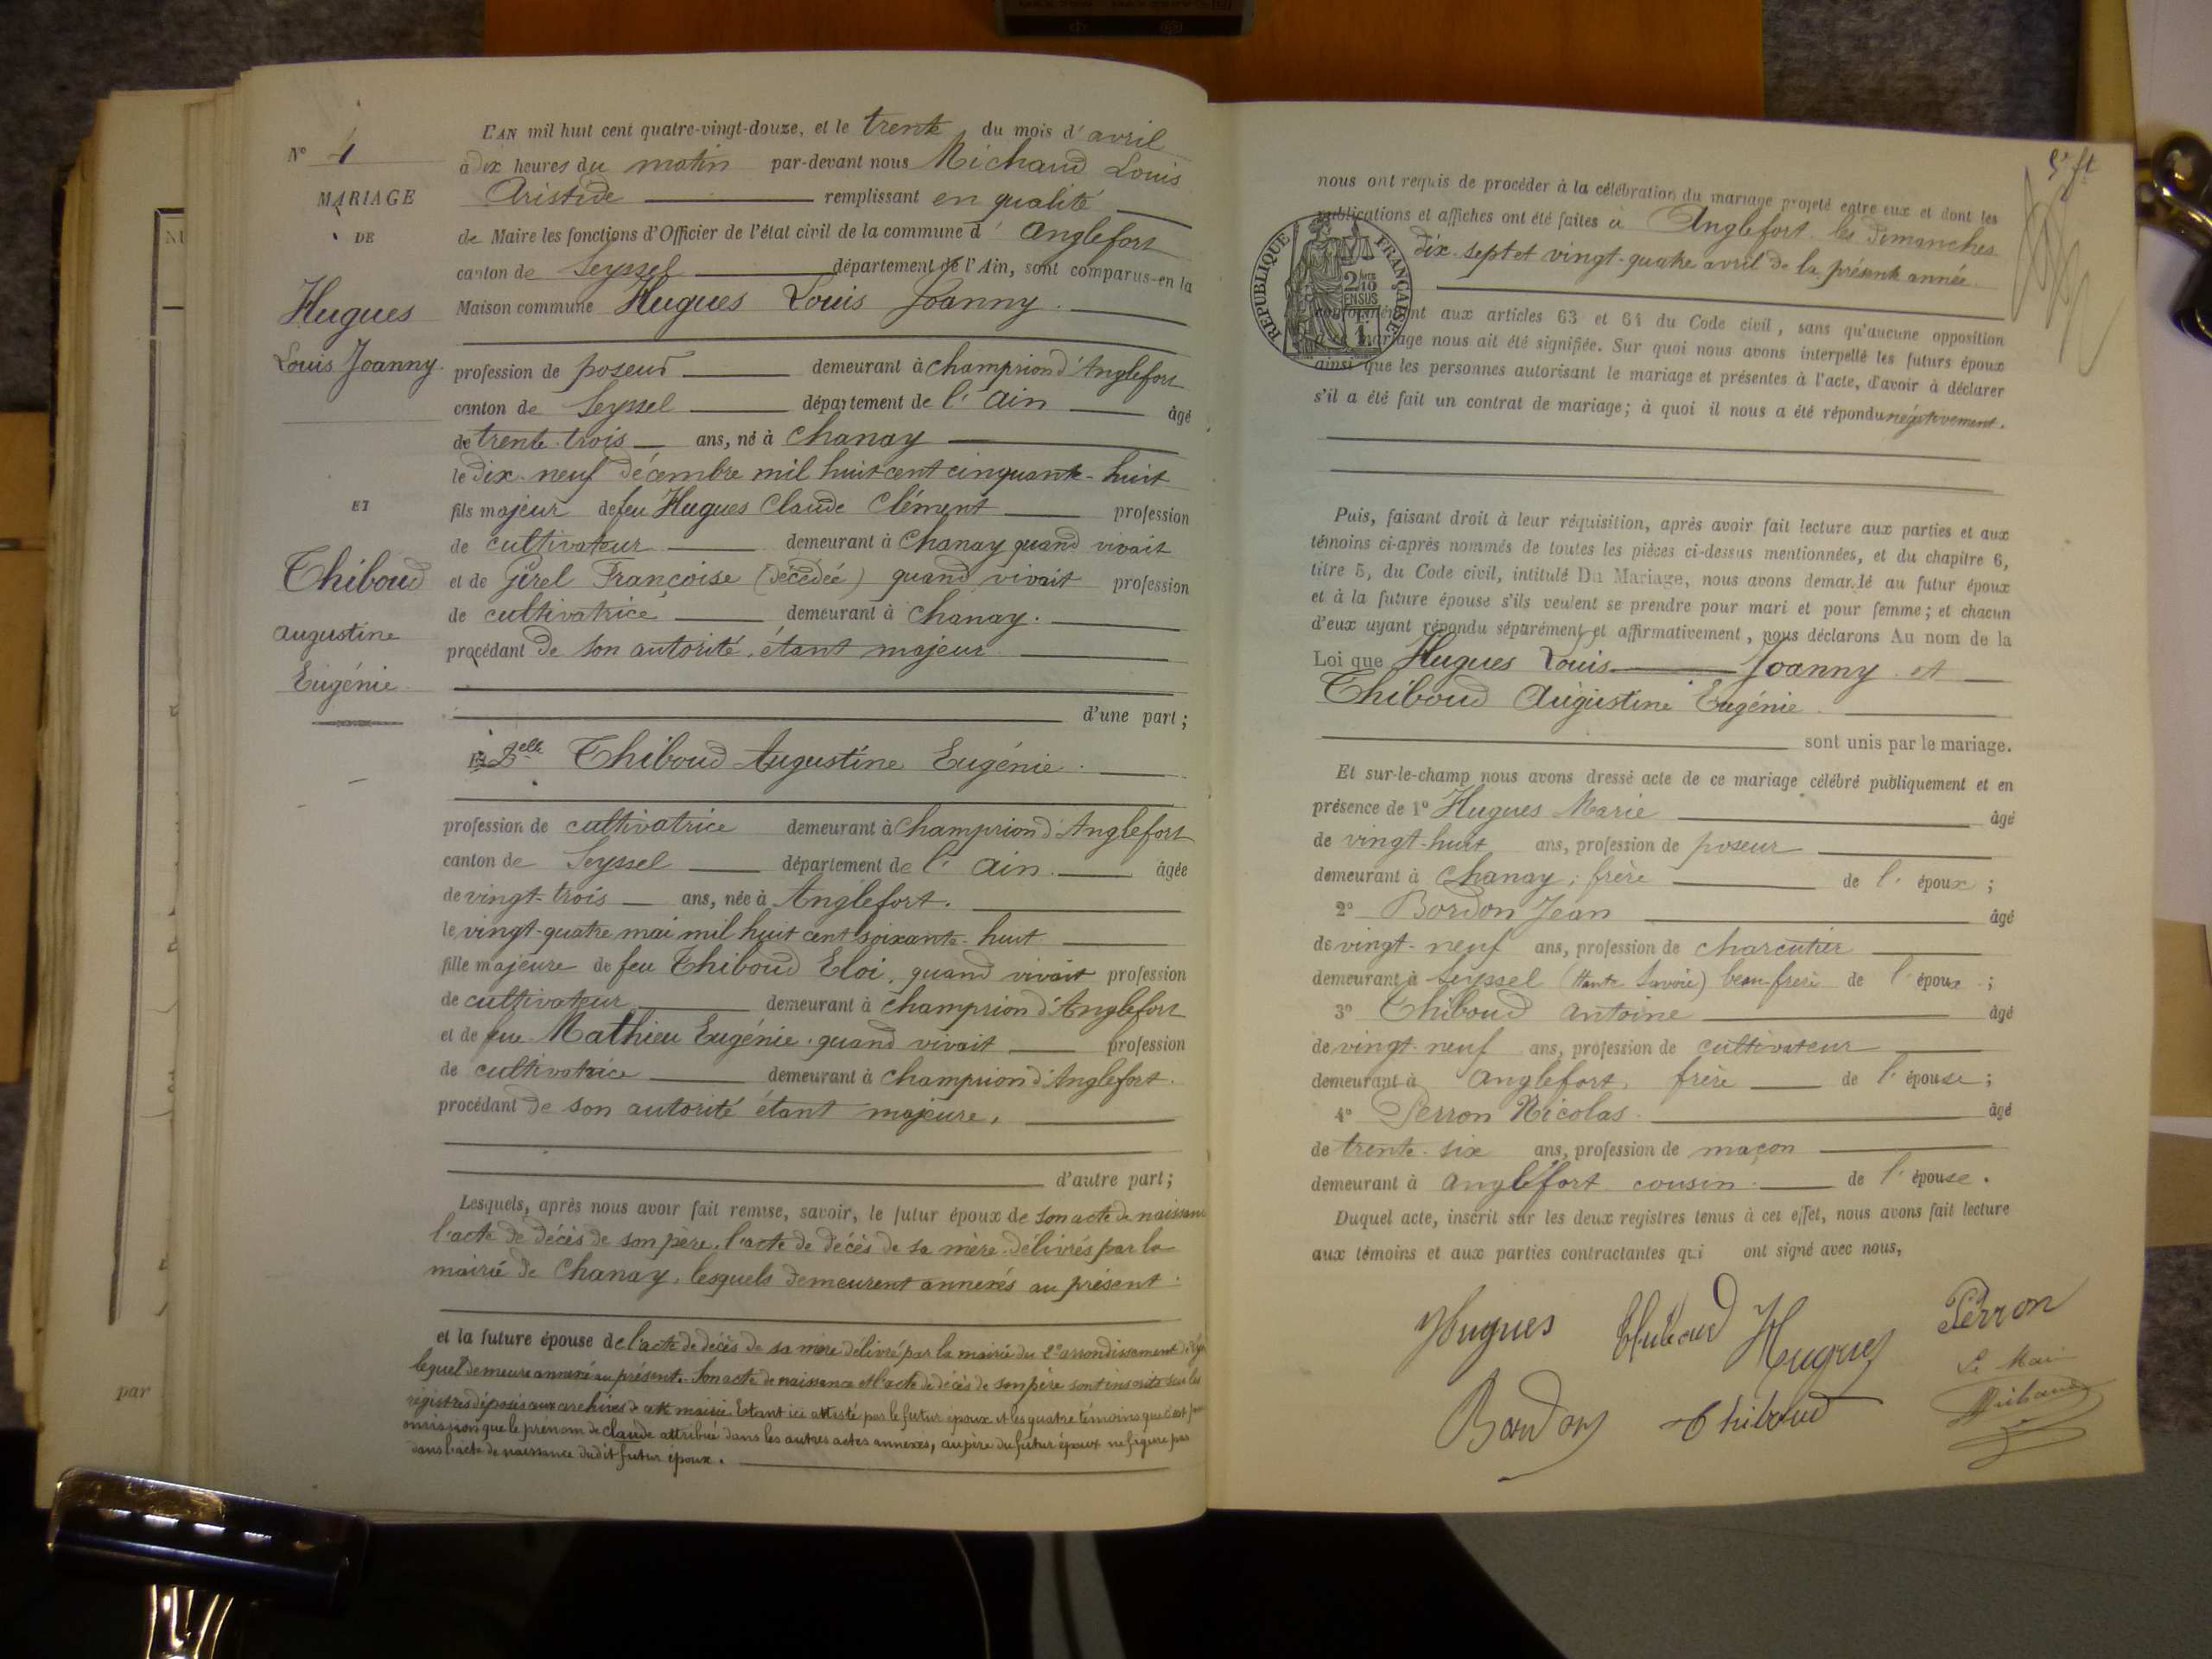 L'AN mil huit cent quatre-vingt-douze, et le trente du mois d'avril
à dix heures du matin par-devant nous Michaud Louis
Aristide remplissant en qualité
de Maire les fonctions d'Officier de l'état civil de la commune d'Anglefort
canton de Seyssel département de l'Ain, sont comparus en la
Maison commune Hugues Louis Joanny.
profession de poseur demeurant à Champriond d'Anglefort
canton de Seyssel département de l'Ain âgé
de trente-trois ans, né à Chanay
le dix-neuf décembre mil huit cent cinquante-huit
fils majeur de feu Hugues Claude Clément profession
de cultivateur demeurant à Chanay quand vivait
et de Girel Françoise (décédée) quand vivait profession
de cultivatrice demeurant à Chanay.
procédant de son autorité, étant majeur
d'une part;
Et Delle Thiboud Augustine Eugénie.
profession de cultivatrice demeurant à Champriond d'Anglefort
canton de Seyssel département de l'Ain. âgée
de vingt-trois ans, née à Anglefort.
le vingt-quatre mai mil huit cent soixante-huit
fille majeure de feu Thiboud Eloi, quand vivait profession
de cultivateur demeurant à Champriond d'Anglefort
et de feue Mathieu Eugénie, quand vivait profession
de cultivatrice demeurant à Champriond d'Anglefort.
procédant de son autorité étant majeure,
d'autre part;
Lesquels, après nous avoir fait remise, savoir, le futur époux de son acte de naissance
l'acte de décès de son père, l'acte de décès de sa mère, délivrés par la
mairie de Chanay, lesquels demeurent annexés au présent.
et la future épouse de l'acte de décès de sa mère délivré par la mairie du 2e arrondissement de
lequel demeure annexé au présent. Son acte de naissance et l'acte de décès de son père sont inscrits sur les
registres déposés aux archives de cette mairie. Etant ici attesté par le futur époux et les quatre témoins que c'est par
omission que le prénom de Claude attribué dans les autres actes annexés, au père du futur époux ne figure pas
dans l'acte de naissance dudit futur époux.
No 4
MARIAGE
DE
Hugues
Louis Joanny.
ET
Thiboud
Augustine
Eugénie
par
nous ont requis de procéder à la célébration du mariage projeté entre eux et dont les
publications et affiches ont été faites à Anglefort les dimanches
dix-sept et vingt-quatre avril de la présente année.
RÉPUBLIQUE FRANÇAISE
2/10 EN SUS
conformément aux articles 63 et 64 du Code civil, sans qu'aucune opposition
à ce mariage nous ait été signifiée. Sur quoi nous avons interpellé les futurs époux
ainsi que les personnes autorisant le mariage et présentes à l'acte, d'avoir à déclarer
s'il a été fait un contrat de mariage; à quoi il nous a été répondu négativement.
Puis, faisant droit à leur réquisition, après avoir fait lecture aux parties et aux
témoins ci-après nommés de toutes les pièces ci-dessus mentionnées, et du chapitre 6,
titre 5, du Code civil, intitulé Du Mariage, nous avons demandé au futur époux
et à la future épouse s'ils veulent se prendre pour mari et pour femme; et chacun
d'eux ayant répondu séparément et affirmativement, nous déclarons Au nom de la
Loi que Hugues Louis Joanny et
Thiboud Augustine Eugénie
sont unis par le mariage.
Et sur-le-champ nous avons dressé acte de ce mariage célébré publiquement et en
présence de 1o Hugues Marie âgé
de vingt-huit ans, profession de poseur
demeurant à Chanay, frère de l'époux;
2o Bordon Jean âgé
de vingt-neuf ans, profession de charcutier
demeurant à Seyssel (Haute Savoie) beau-frère de l'époux;
3o Thiboud Antoine âgé
de vingt-neuf ans, profession de cultivateur
demeurant à Anglefort, frère de l'épouse;
4o Perron Nicolas. âgé
de trente-six ans, profession de maçon
demeurant à Anglefort cousin de l'épouse.
Duquel acte, inscrit sur les deux registres tenus à cet effet, nous avons fait lecture
aux témoins et aux parties contractantes qui ont signé avec nous,
Hugues Thiboud Hugues Perron
Le Maire
Bordon Thiboud Michaud